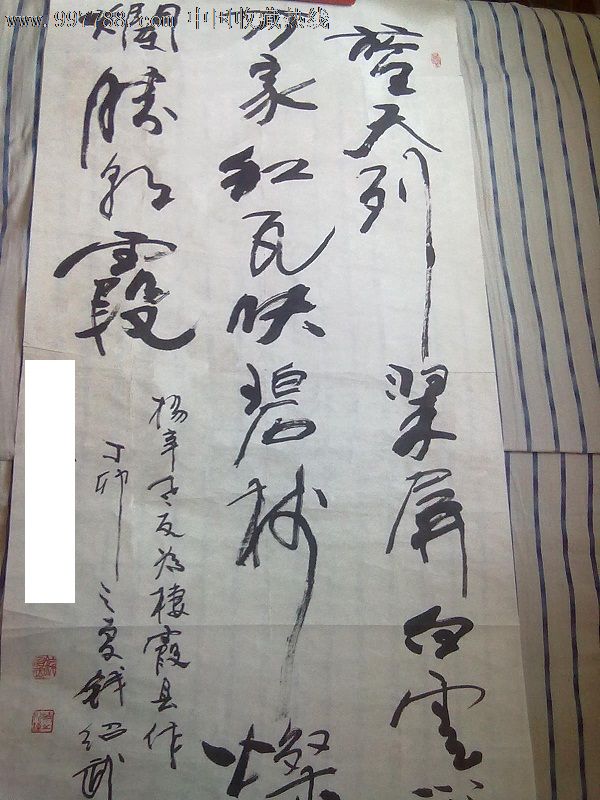 www.997788.com 中国收藏热线
天列翠屏白雲
万家紅瓦映碧树燦
爛勝朝霞
杨辛老友为棲霞县作
丁卯之夏钱绍武